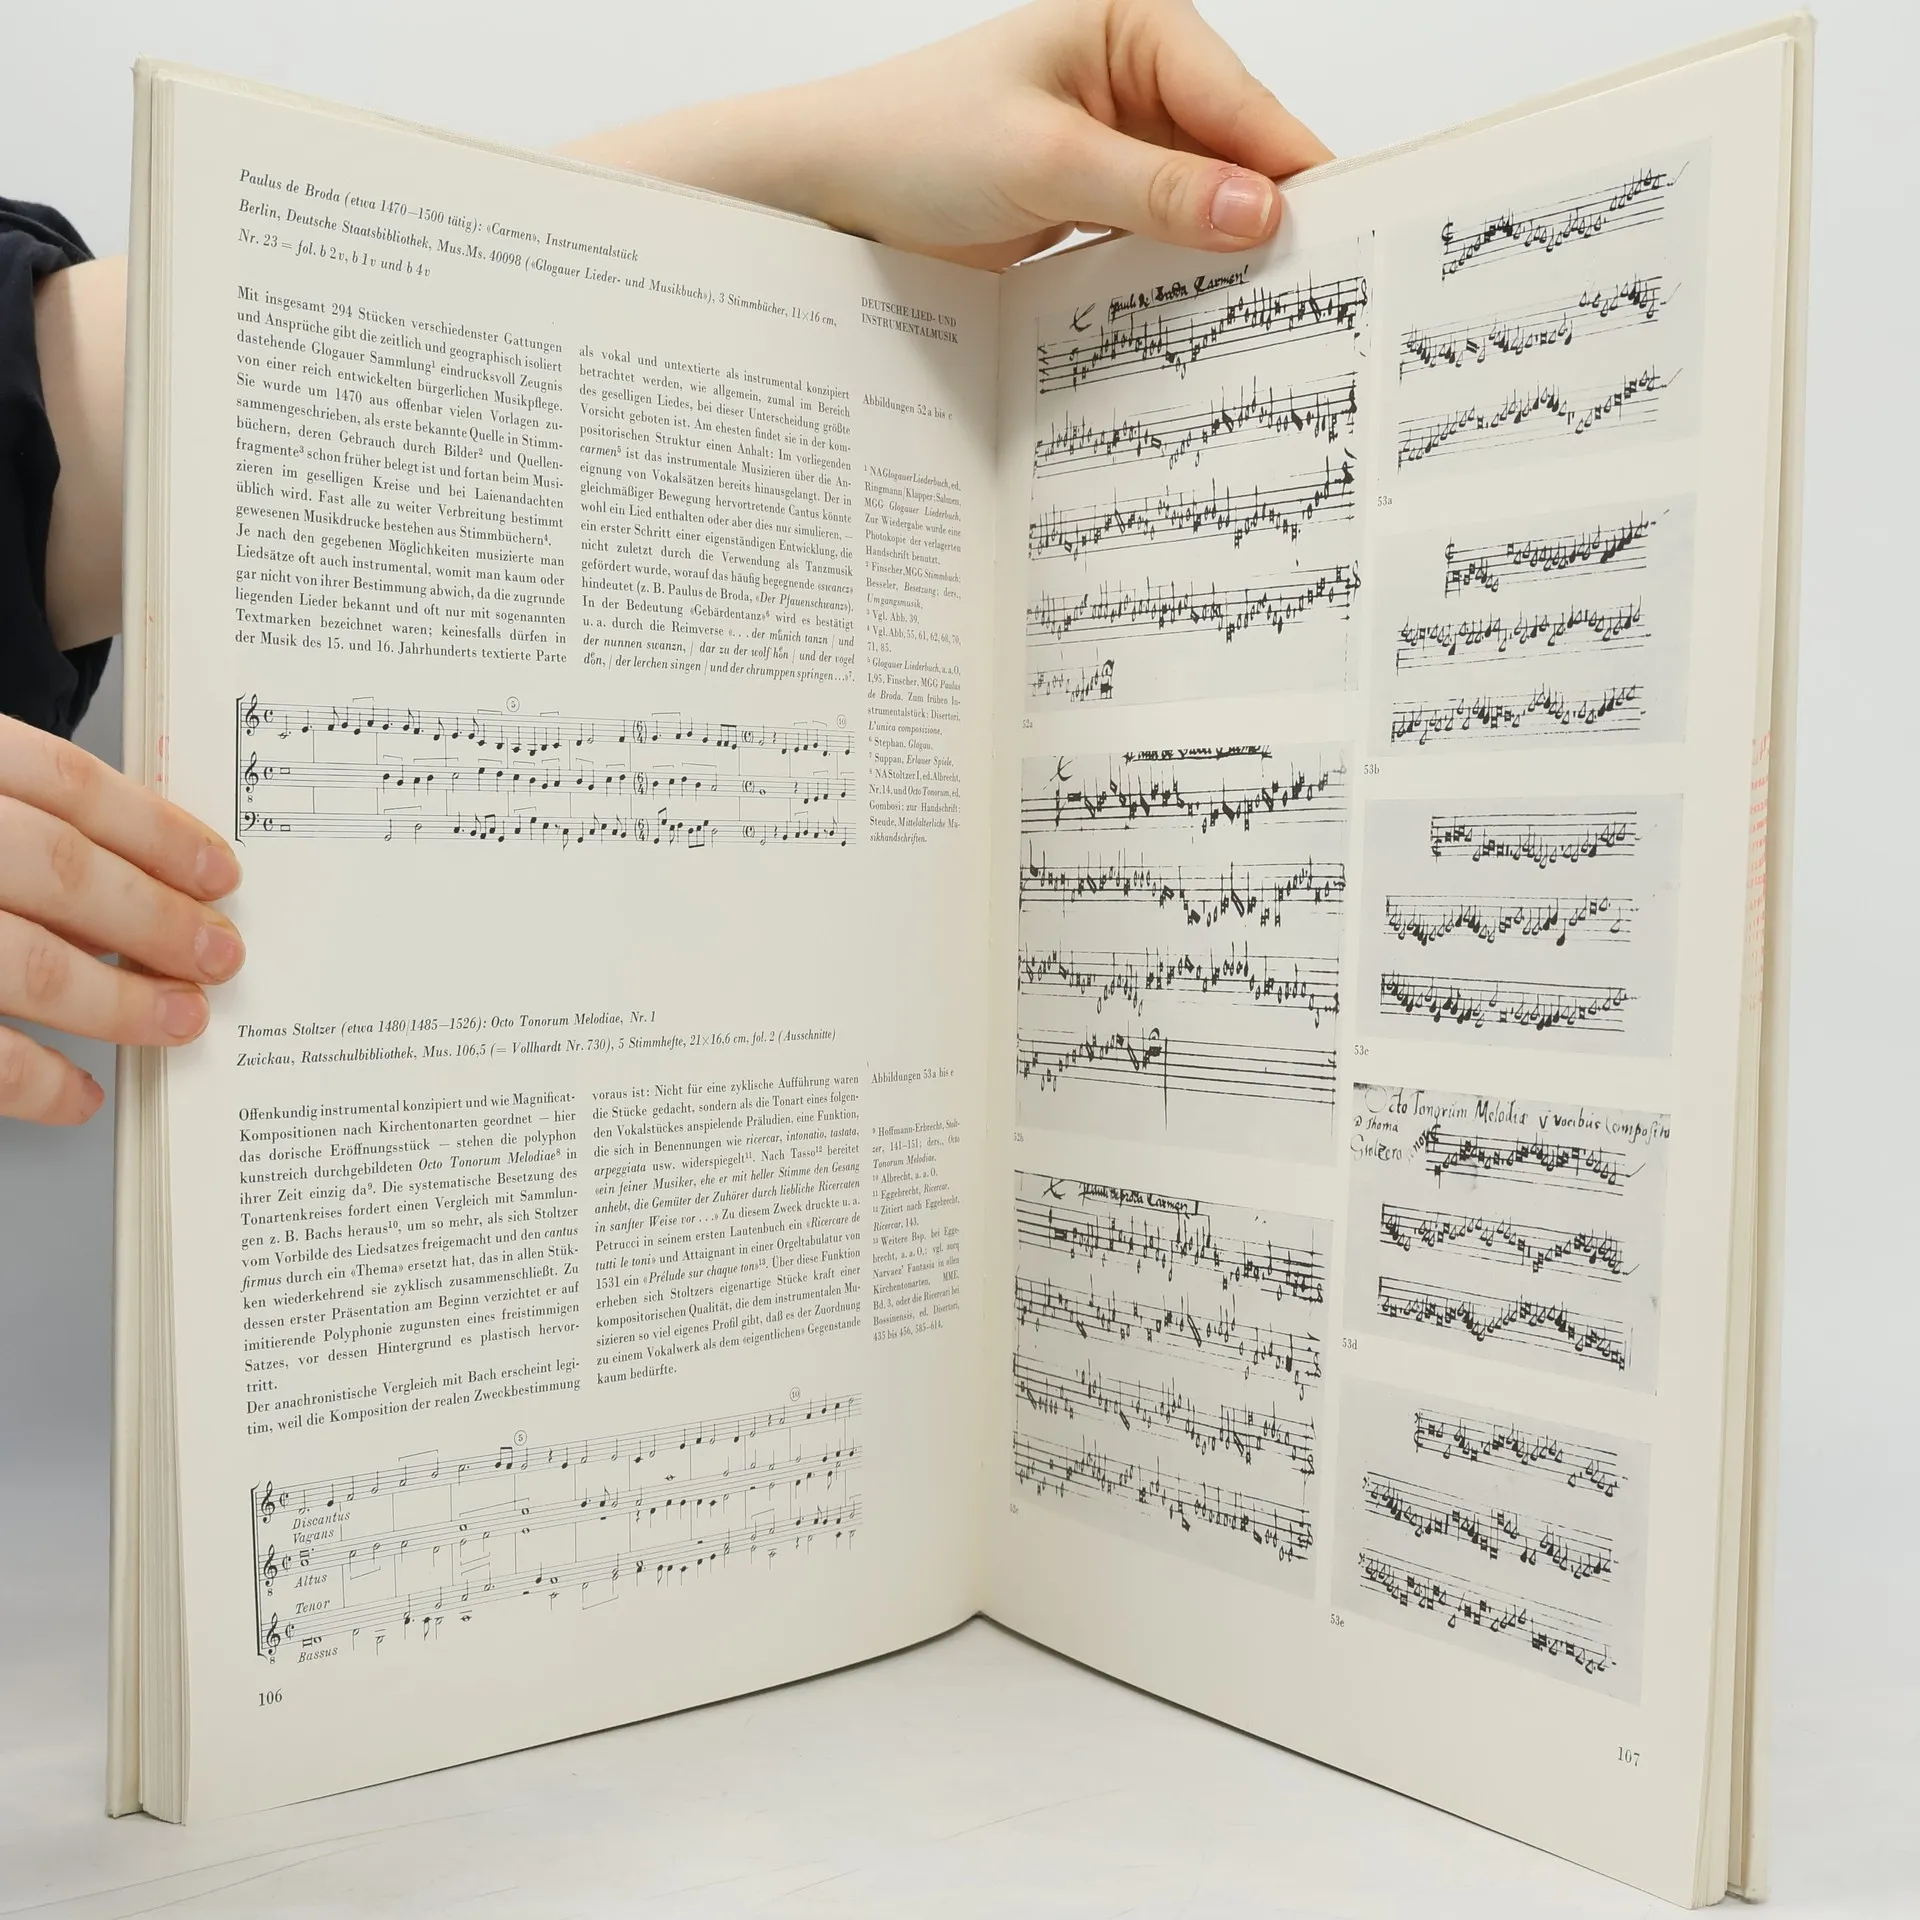 Paulus de Broda (etwa 1470–1500 tätig): «Carmen», Instrumentalstück
Berlin, Deutsche Staatsbibliothek, Mus.Ms. 40098 («Glogauer Lieder- und Musikbuch»), 3 Stimmbücher, 11×16 cm,
Nr. 23 = fol. b 2v, b 1v und b 4v
Mit insgesamt 294 Stücken verschiedenster Gattungen
und Ansprüche gibt die zeitlich und geographisch isoliert
dastehende Glogauer Sammlung¹ eindrucksvoll Zeugnis
von einer reich entwickelten bürgerlichen Musikpflege.
Sie wurde um 1470 aus offenbar vielen Vorlagen zu-
sammengeschrieben, als erste bekannte Quelle in Stimm-
büchern, deren Gebrauch durch Bilder² und Quellen-
fragmente³ schon früher belegt ist und fortan beim Musi-
zieren im geselligen Kreise und bei Laienandachten
üblich wird. Fast alle zu weiter Verbreitung bestimmt
gewesenen Musikdrucke bestehen aus Stimmbüchern⁴.
Je nach den gegebenen Möglichkeiten musizierte man
Liedsätze oft auch instrumental, womit man kaum oder
gar nicht von ihrer Bestimmung abwich, da die zugrunde
liegenden Lieder bekannt und oft nur mit sogenannten
Textmarken bezeichnet waren; keinesfalls dürfen in
der Musik des 15. und 16. Jahrhunderts textierte Parte
als vokal und untextierte als instrumental konzipiert
betrachtet werden, wie allgemein, zumal im Bereich
des geselligen Liedes, bei dieser Unterscheidung größte
Vorsicht geboten ist. Am ehesten findet sie in der kom-
positorischen Struktur einen Anhalt: Im vorliegenden
carmen⁵ ist das instrumentale Musizieren über die An-
eignung von Vokalsätzen bereits hinausgelangt. Der in
gleichmäßiger Bewegung hervortretende Cantus könnte
wohl ein Lied enthalten oder aber dies nur simulieren, –
ein erster Schritt einer eigenständigen Entwicklung, die
nicht zuletzt durch die Verwendung als Tanzmusik
gefördert wurde, worauf das häufig begegnende «swancz»
hindeutet (z. B. Paulus de Broda, «Der Pfauenschwanz»).
In der Bedeutung «Gebärdentanz»⁶ wird es bestätigt
u. a. durch die Reimverse «. . . der münich tanzn | und
der nunnen swanzn, | dar zu der wolf hön | und der vogel
dön, | der lerchen singen | und der chrumppen springen ...»⁷.
DEUTSCHE LIED- UND
INSTRUMENTALMUSIK
Abbildungen 52a bis c
¹ NA Glogauer Liederbuch, ed.
Ringmann/Klapper; Salmen,
MGG Glogauer Liederbuch.
Zur Wiedergabe wurde eine
Photokopie der verlagerten
Handschrift benutzt.
² Finscher, MGG Stimmbuch;
Besseler, Besetzung; ders.,
Umgangsmusik.
³ Vgl. Abb. 39.
⁴ Vgl. Abb. 55, 61, 62, 68, 70,
71, 85.
⁵ Glogauer Liederbuch, a. a. O.
I, 95. Finscher, MGG Paulus
de Broda. Zum frühen In-
strumentalstück: Disertori,
L'unica composizione.
⁶ Stephan, Glogau.
⁷ Suppan, Erlauer Spiele.
⁸ NA Stoltzer I, ed. Albrecht,
Nr. 14, und Octo Tonorum, ed.
Gombosi; zur Handschrift:
Steude, Mittelalterliche Mu-
sikhandschriften.
5
10
Thomas Stoltzer (etwa 1480/1485–1526): Octo Tonorum Melodiae, Nr. 1
Zwickau, Ratsschulbibliothek, Mus. 106,5 (= Vollhardt Nr. 730), 5 Stimmhefte, 21×16,6 cm, fol. 2 (Ausschnitte)
Offenkundig instrumental konzipiert und wie Magnificat-
Kompositionen nach Kirchentonarten geordnet – hier
das dorische Eröffnungsstück – stehen die polyphon
kunstreich durchgebildeten Octo Tonorum Melodiae⁸ in
ihrer Zeit einzig da⁹. Die systematische Besetzung des
Tonartenkreises fordert einen Vergleich mit Sammlun-
gen z. B. Bachs heraus¹⁰, um so mehr, als sich Stoltzer
vom Vorbilde des Liedsatzes freigemacht und den cantus
firmus durch ein «Thema» ersetzt hat, das in allen Stük-
ken wiederkehrend sie zyklisch zusammenschließt. Zu
dessen erster Präsentation am Beginn verzichtet er auf
imitierende Polyphonie zugunsten eines freistimmigen
Satzes, vor dessen Hintergrund es plastisch hervor-
tritt.
Der anachronistische Vergleich mit Bach erscheint legi-
tim, weil die Komposition der realen Zweckbestimmung
voraus ist: Nicht für eine zyklische Aufführung waren
die Stücke gedacht, sondern als die Tonart eines folgen-
den Vokalstückes anspielende Präludien, eine Funktion,
die sich in Benennungen wie ricercar, intonatio, tastata,
arpeggiata usw. widerspiegelt¹¹. Nach Tasso¹² bereitet
«ein feiner Musiker, ehe er mit heller Stimme den Gesang
anhebt, die Gemüter der Zuhörer durch liebliche Ricercaten
in sanfter Weise vor . . .» Zu diesem Zweck druckte u. a.
Petrucci in seinem ersten Lautenbuch ein «Ricercare de
tutti le toni» und Attaignant in einer Orgeltabulatur von
1531 ein «Prélude sur chaque ton»¹³. Über diese Funktion
erheben sich Stoltzers eigenartige Stücke kraft einer
kompositorischen Qualität, die dem instrumentalen Mu-
sizieren so viel eigenes Profil gibt, daß es der Zuordnung
zu einem Vokalwerk als dem «eigentlichen» Gegenstande
kaum bedürfte.
Abbildungen 53a bis e
⁹ Hoffmann-Erbrecht, Stolt-
zer, 141–151; ders., Octo
Tonorum Melodiae.
¹⁰ Albrecht, a. a. O.
¹¹ Eggebrecht, Ricercar.
¹² Zitiert nach Eggebrecht,
Ricercar, 143.
¹³ Weitere Bsp. bei Egge-
brecht, a. a. O.; vgl. auch
Narvaez' Fantasia in allen
Kirchentonarten, MME,
Bd. 3, oder die Ricercari bei
Bossinensis, ed. Disertori,
435 bis 456, 585–614.
5
10
Discantus
Vagans
Altus
Tenor
Bassus
106
pauli de Broda Carmen
52a
52b
pauli de broda Carmen
53a
53b
53c
Octo Tonorum Melodiæ V vocibus Composito
D Thoma
Stolzero
53d
53e
107